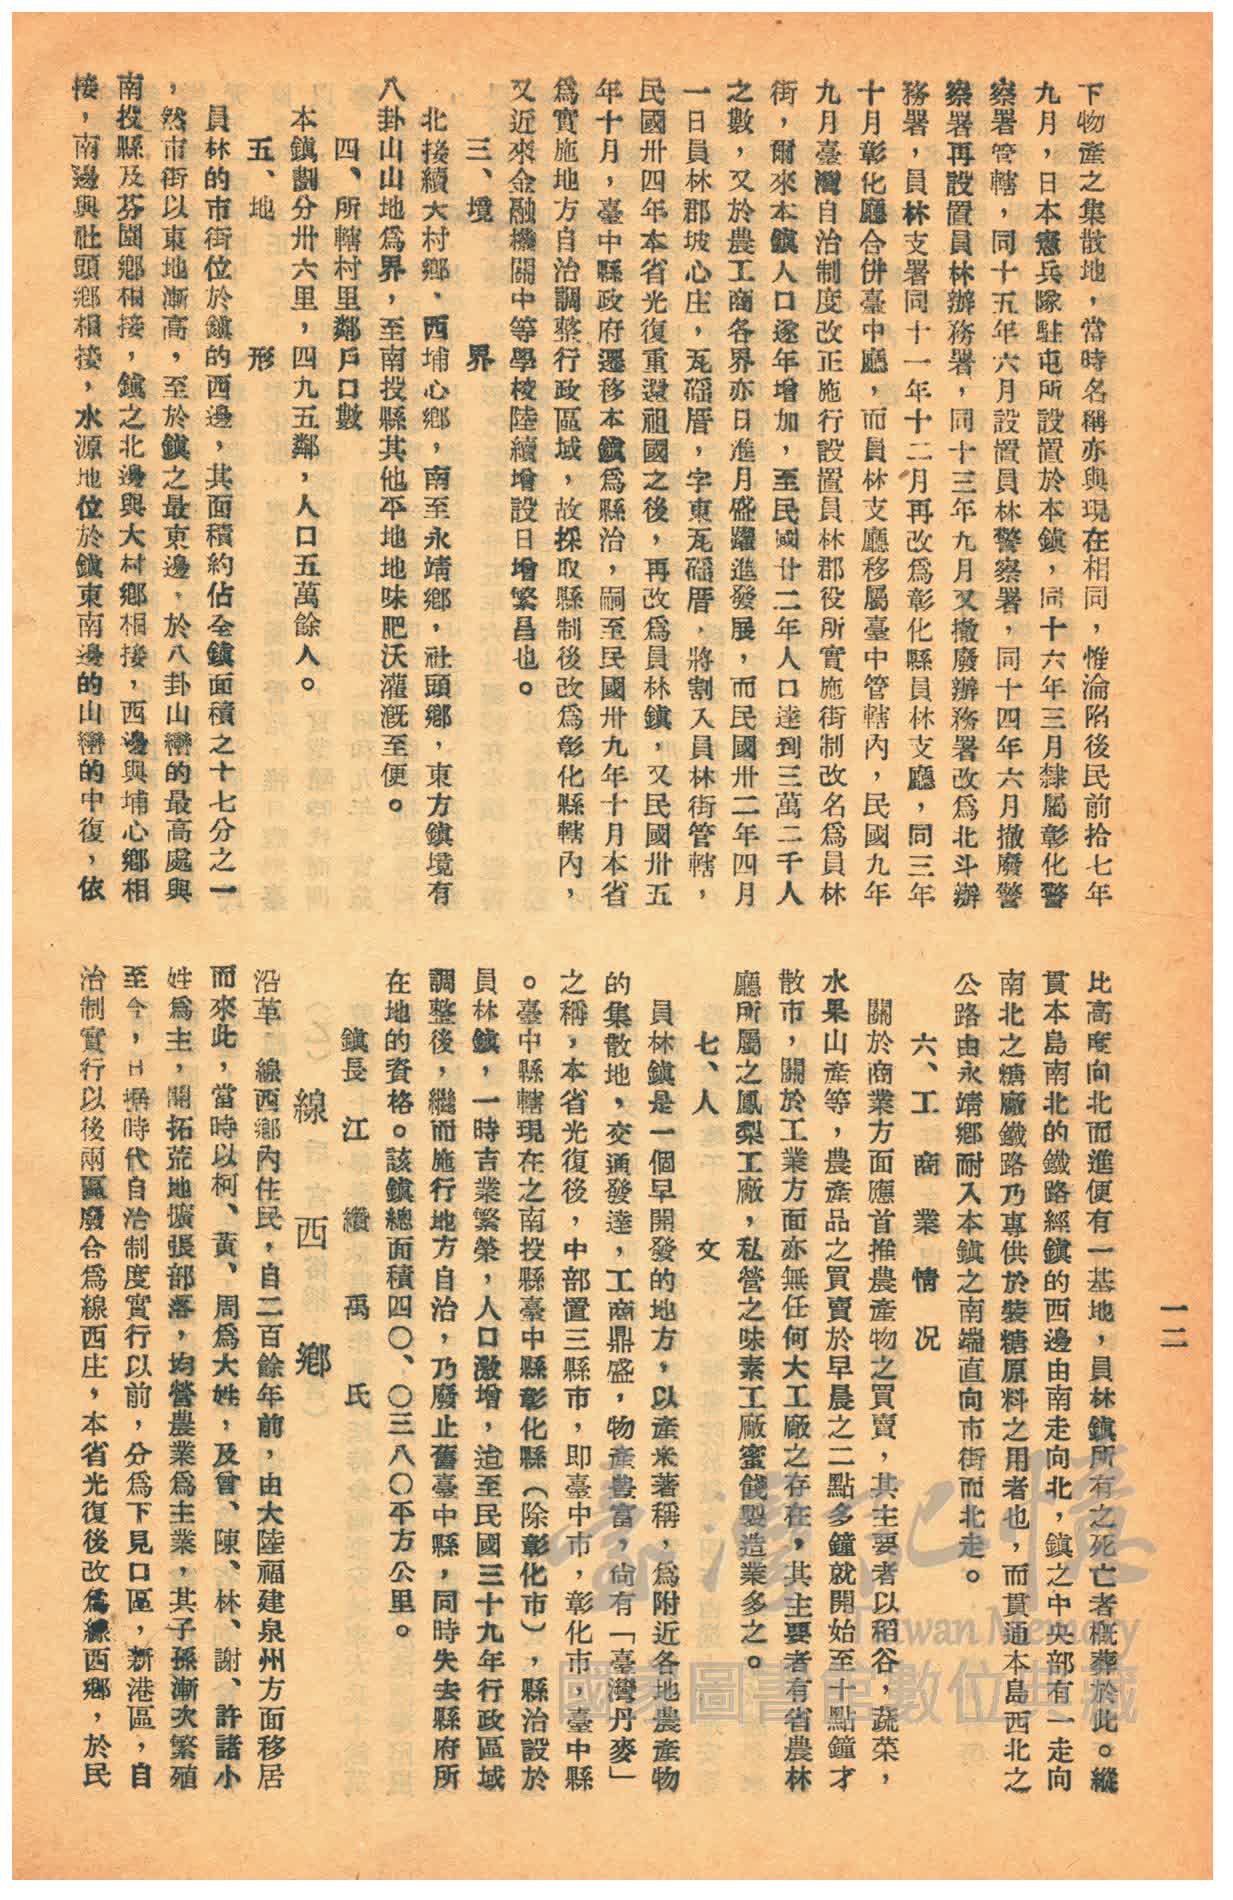 下物產之集散地，當時名稱亦與現在相同，惟淪陷後民前拾七年
九月，日本憲兵隊駐屯所設置於本鎮，同十六年三月隸屬彰化警
察署管轄，同十五年六月設置員林警察署，同十四年六月撤廢警
察署再設置員林辦務署，同十三年九月又撤廢辦務署改爲北斗辦
務署，員林支署同十一年十二月再改爲彰化縣員林支廳，同三年
十月彰化廳合併臺中廳，而員林支廳移屬臺中管轄內，民國九年
九月臺灣自治制度改正施行設置員林郡役所實施街制改名爲員林
街，爾來本鎮人口逐年增加，至民國廿二年人口達到三萬二千人
之數，又於農工商各界亦日進月盛躍進發展，而民國卅二年四月
一日員林郡坡心庄，瓦磘厝，字東瓦磘厝，將割入員林街管轄，
民國卅四年本省光復重還祖國之後，再改爲員林鎮，又民國卅五
年十月，臺中縣政府遷移本鎮爲縣治，嗣至民國卅九年十月本省
爲實施地方自治調整行政區域，故採取縣制後改爲彰化縣轄內，
又近來金融機關中等學校陸續增設日增繁昌也。
三、境　界
北接續大村鄉、西埔心鄉，南至永靖鄉，社頭鄉，東方鎮境有
八卦山山地爲界，至南投縣其他平地地味肥沃灌漑至便。
四、所轄村里鄰戶口數
本鎮劃分卅六里，四九五鄰，人口五萬餘人。
五、地　形
員林的市街位於鎮的西邊，其面積約佔全鎮面積之十七分之一
，然市街以東地漸高，至於鎮之最東邊，於八卦山巒的最高處與
南投縣及芬園鄉相接，鎮之北邊與大村鄉相接，西邊與埔心鄉相
接，南邊與社頭鄉相接，水源地位於鎮東南邊的山巒的中復，依
比高度向北而進便有一基地，員林鎮所有之死亡者概葬於此。縱
貫本島南北的鐵路經鎮的西邊由南走向北，鎮之中央部有一走向
南北之糖廠鐵路乃專供於裝糖原料之用者也，而貫通本島西北之
公路由永靖鄉耐入本鎮之南端直向市街而北走。
六、工商業情况
關於商業方面應首推農產物之買賣，其主要者以稻谷，蔬菜，
水果山產等，農產品之買賣於早晨之二點多鐘就開始至十點鐘才
散市，關於工業方面亦無任何大工廠之存在，其主要者有省農林
廳所屬之鳳梨工廠，私營之味素工廠蜜餞製造業多之。
七、人　文
員林鎮是一個早開發的地方，以產米著稱，爲附近各地農產物
的集散地，交通發達，工商鼎盛，物產豊富，尙有「臺灣丹麥」
之稱，本省光復後，中部置三縣市，即臺中市，彰化市，臺中縣
。臺中縣轄現在之南投縣臺中縣彰化縣（除彰化市），縣治設於
員林鎮，一時吉業繁榮，人口激增，迨至民國三十九年行政區域
調整後，繼而施行地方自治，乃廢止舊臺中縣，同時失去縣府所
在地的資格。該鎮總面積四〇、〇三八〇平方公里。
鎮長　江　纘　禹　氏
線　西　鄉
沿革　線西鄉內住民，自二百餘年前，由大陸福建泉州方面移居
而來此，當時以柯、黃、周爲大姓，及曾、陳、林、謝、許諸小
姓爲主，開拓荒地擴張部落，均營農業爲主業，其子孫漸次繁殖
至今，日據時代自治制度實行以前，分爲下見口區，新港區，自
治制實行以後兩區廢合爲線西庄，本省光復後改爲線西鄉，於民
一二
臺灣記憶
Taiwan Memory
國家圖書館數位典藏